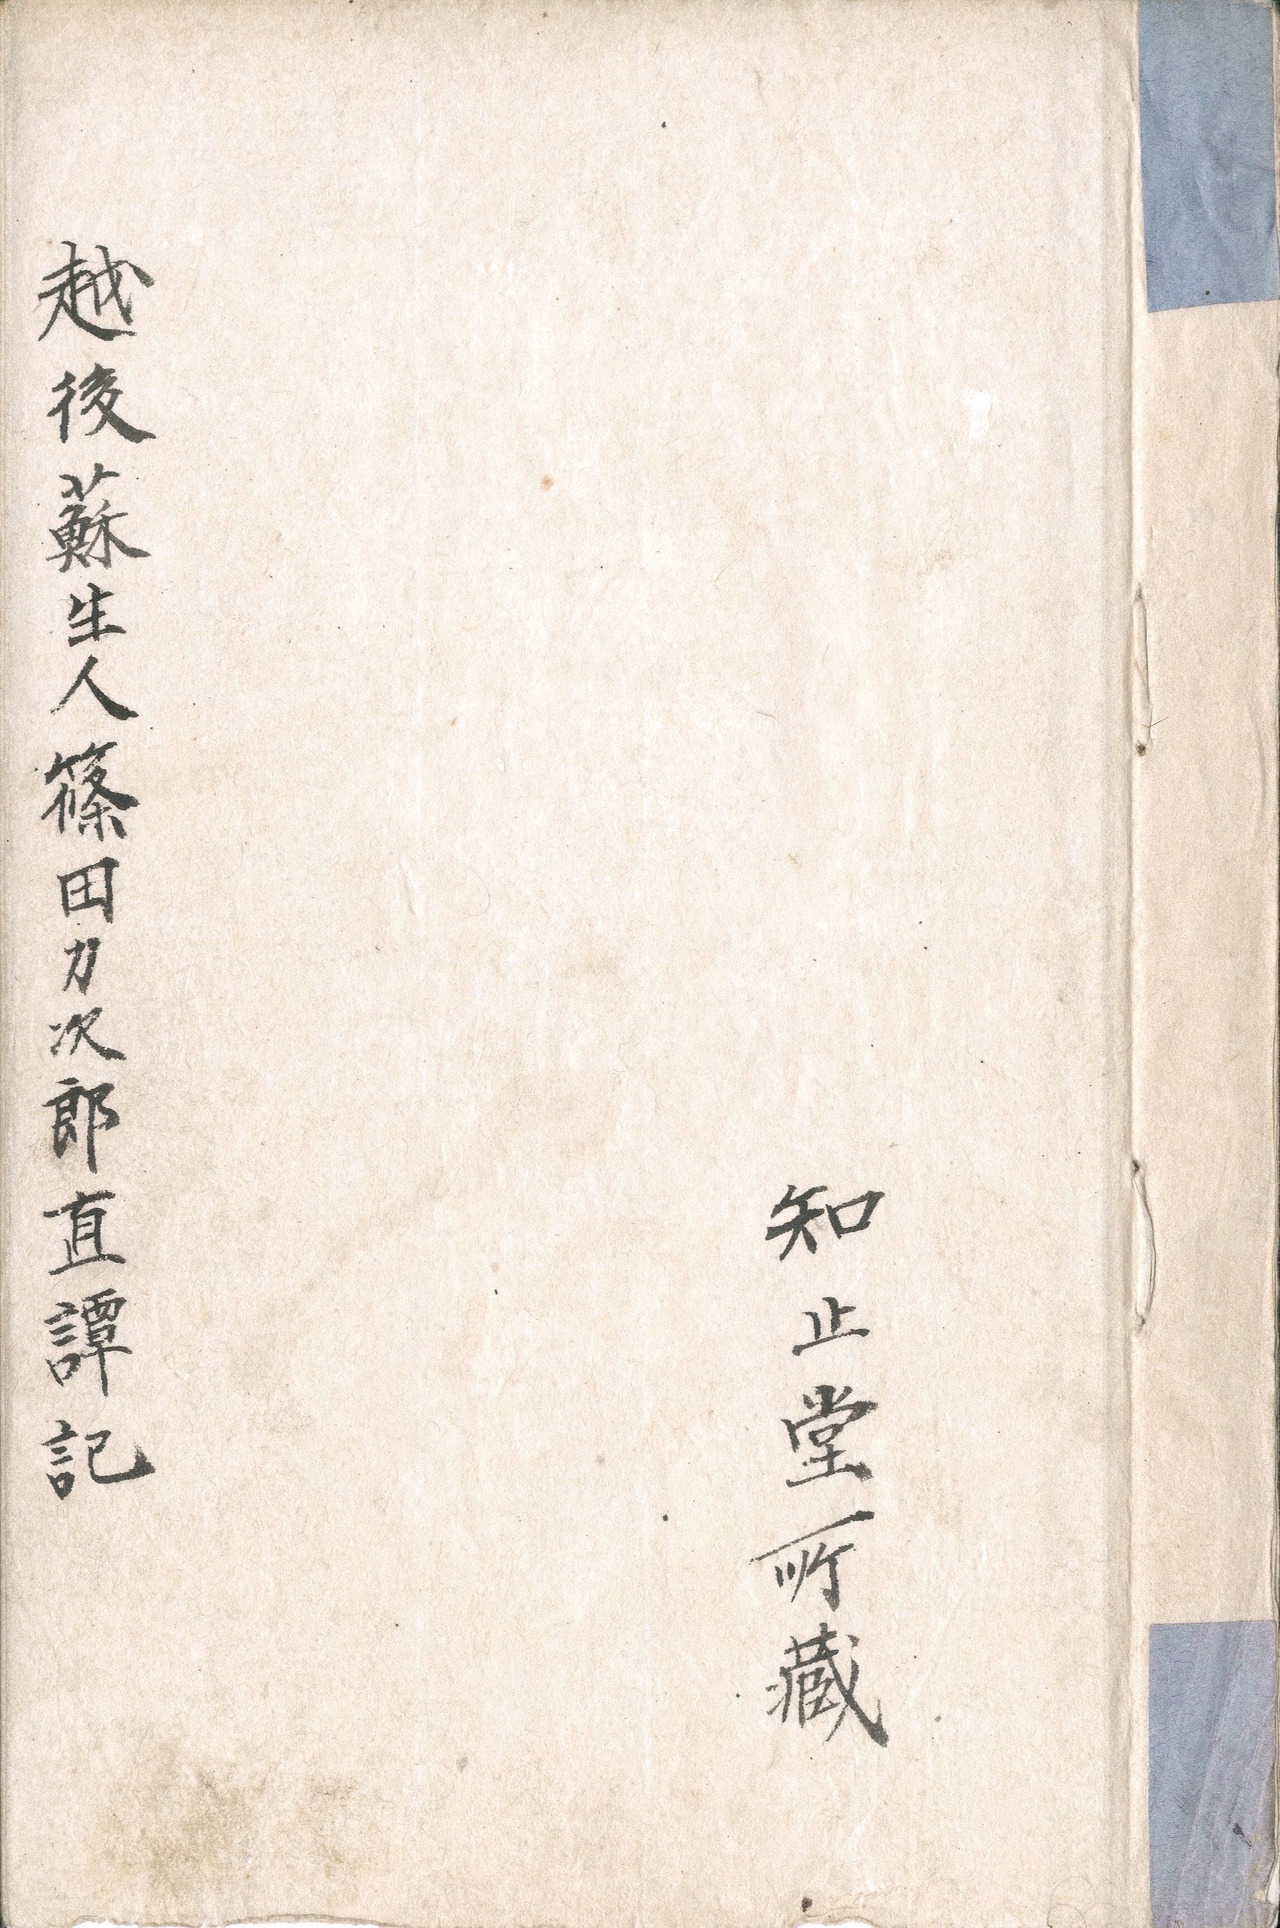 知止堂所藏
越後蘇生人篠田力次郎直譚記